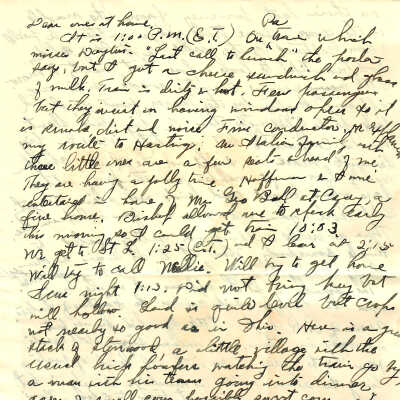 Dear ones at home,
It is 1:00 P.M. (E.T.) On train which
misses Dayton. "Last call to lunch" the porter
says, but I got a cheese sandwich and glass
of milk. Train is dirty & hot. Few passengers
but they insist on having windows open so it
is smoke, dirt and noise. Fine conductor,
my route to Hastings. An Italian family with
three little ones are a few seats ahead of me.
They are having a jolly time. Hoffman &
entertained in home of Mr. Geo Ball at a
fine home. Bishop allowed me to speak early
this morning so I could get train 10:03.
We get to St L. 1:25 (C.T.) and I leave at 2:15
Will try to call Nellie. Will try to get home
night 1:13. Did not bring key but
will hollow. Land is quite level but crops
not nearly so good as in Ohio. Here is a great
stack of a little village with the
usual high watching the train go by,
a man with his team going into dinner